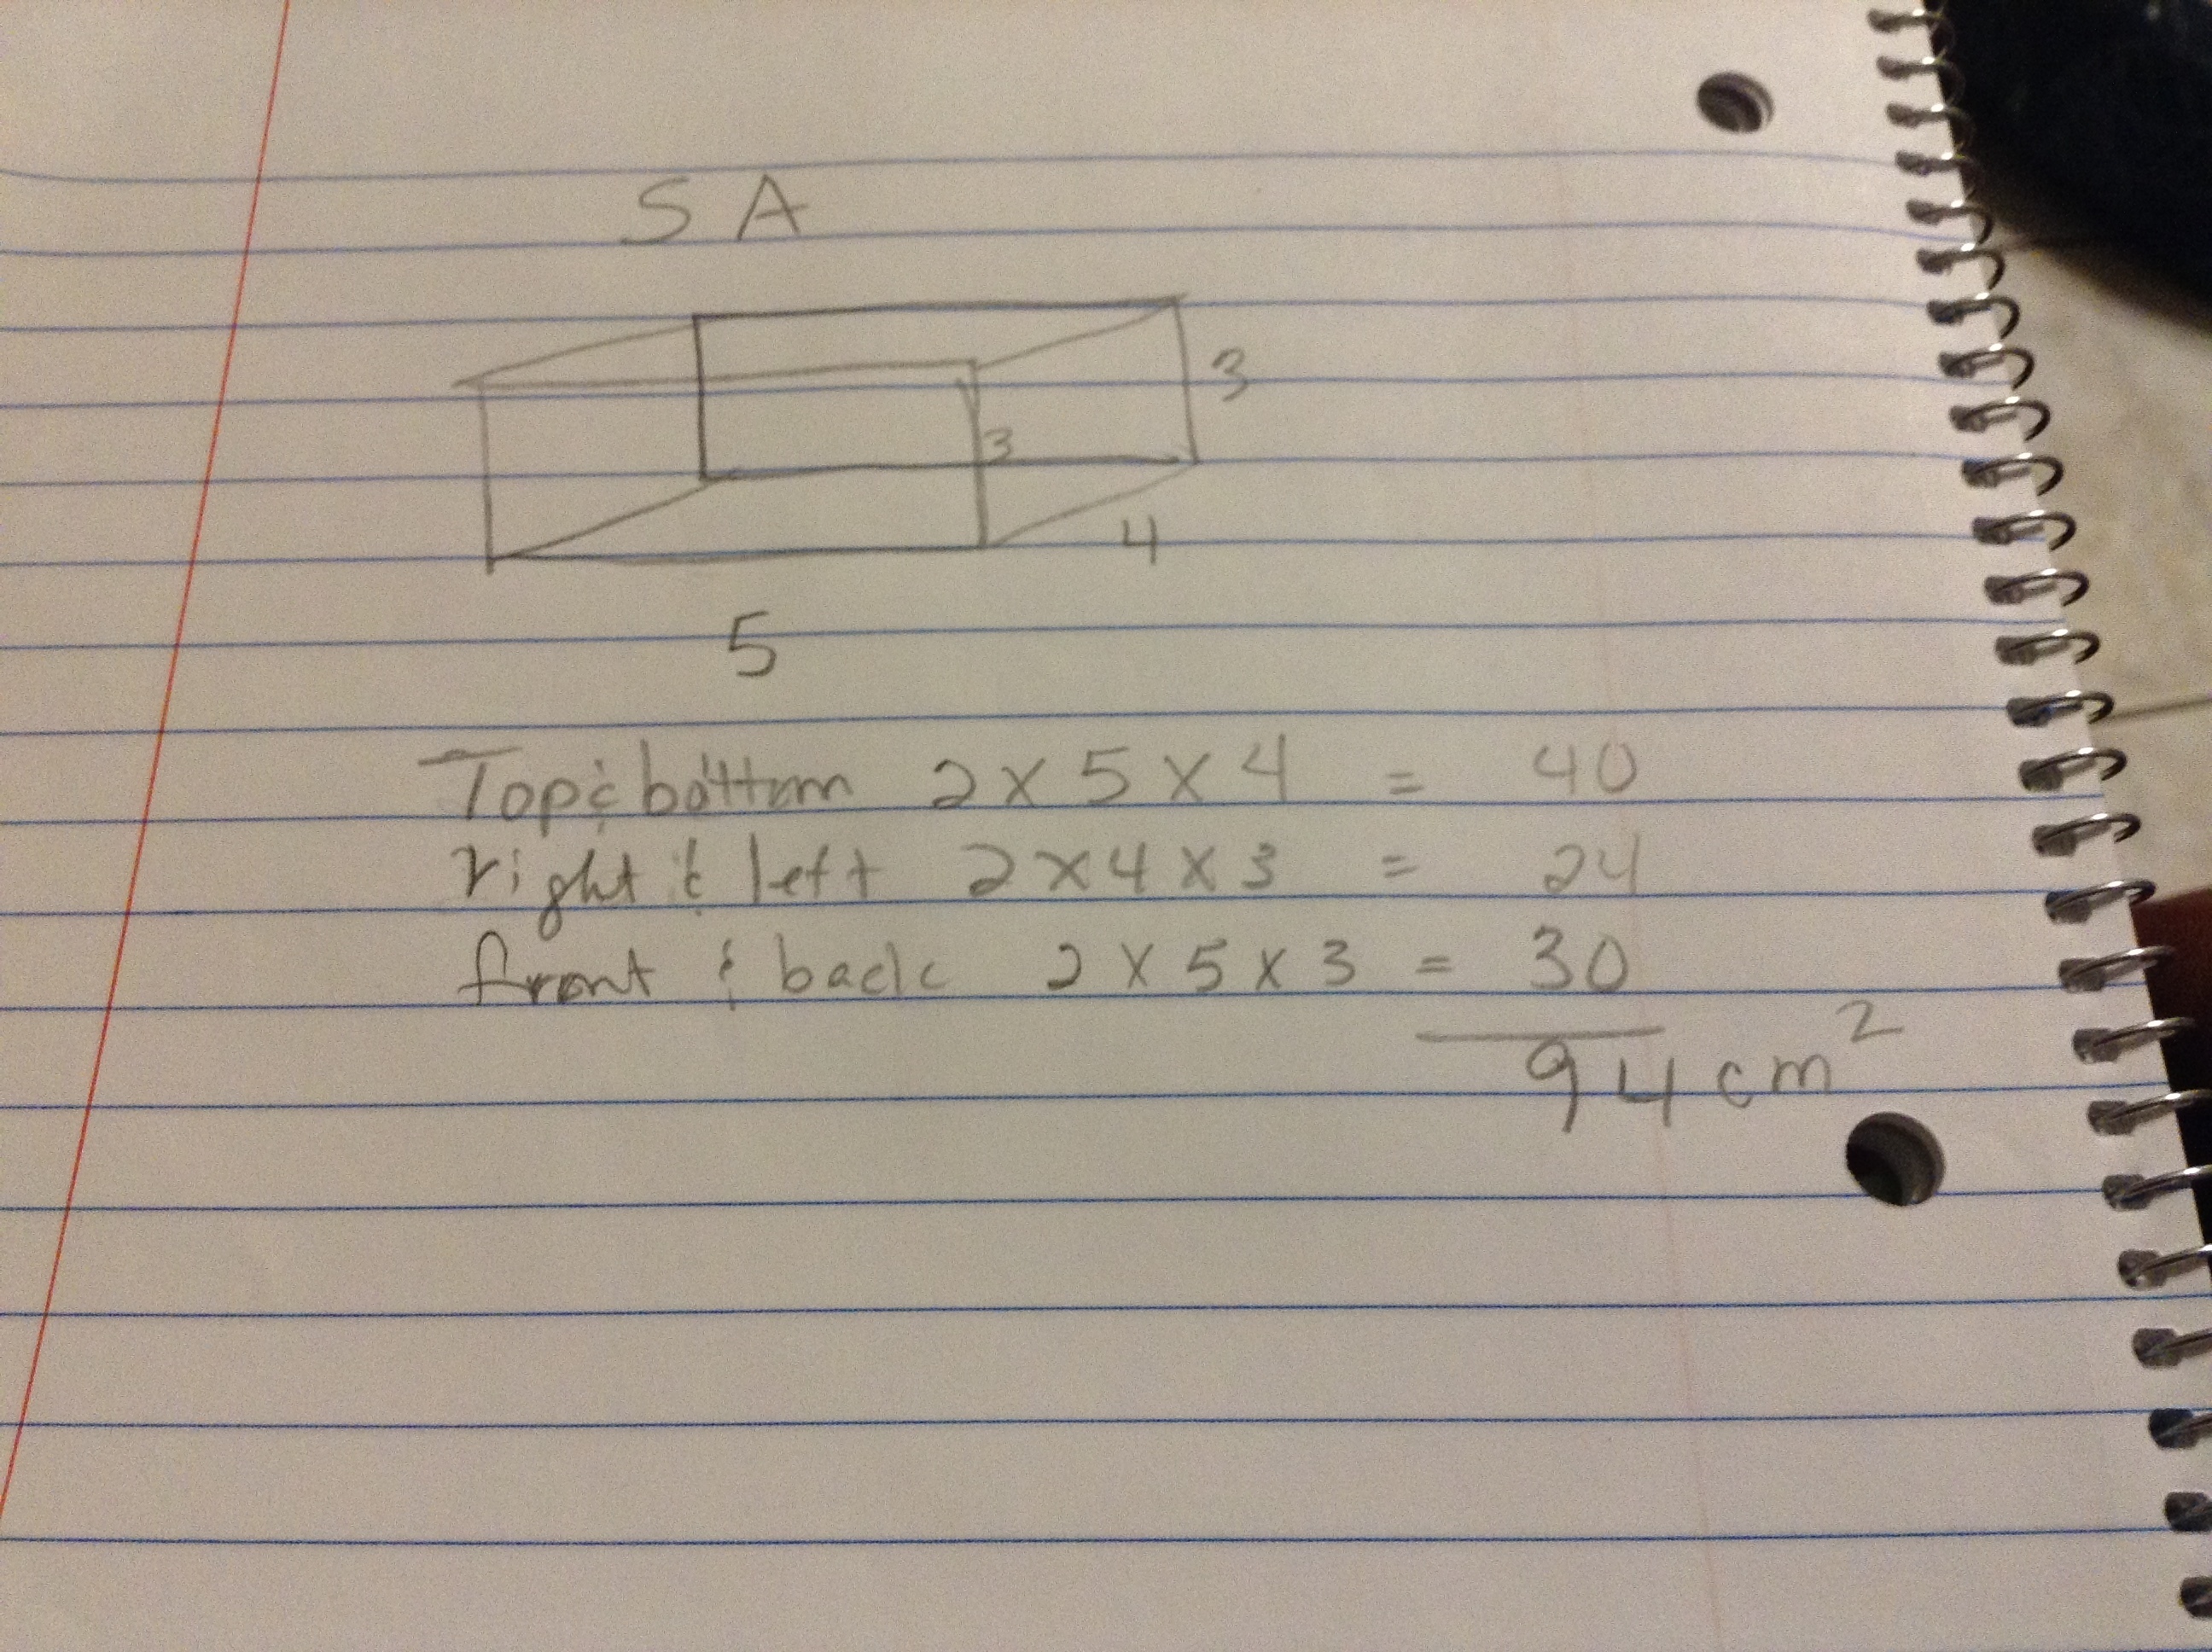 SA
3
3
4
5
Top & bottom 2 x 5 x 4 = 40
right & left 2 x 4 x 3 = 24
front & back 2 x 5 x 3 = 30
94 cm²